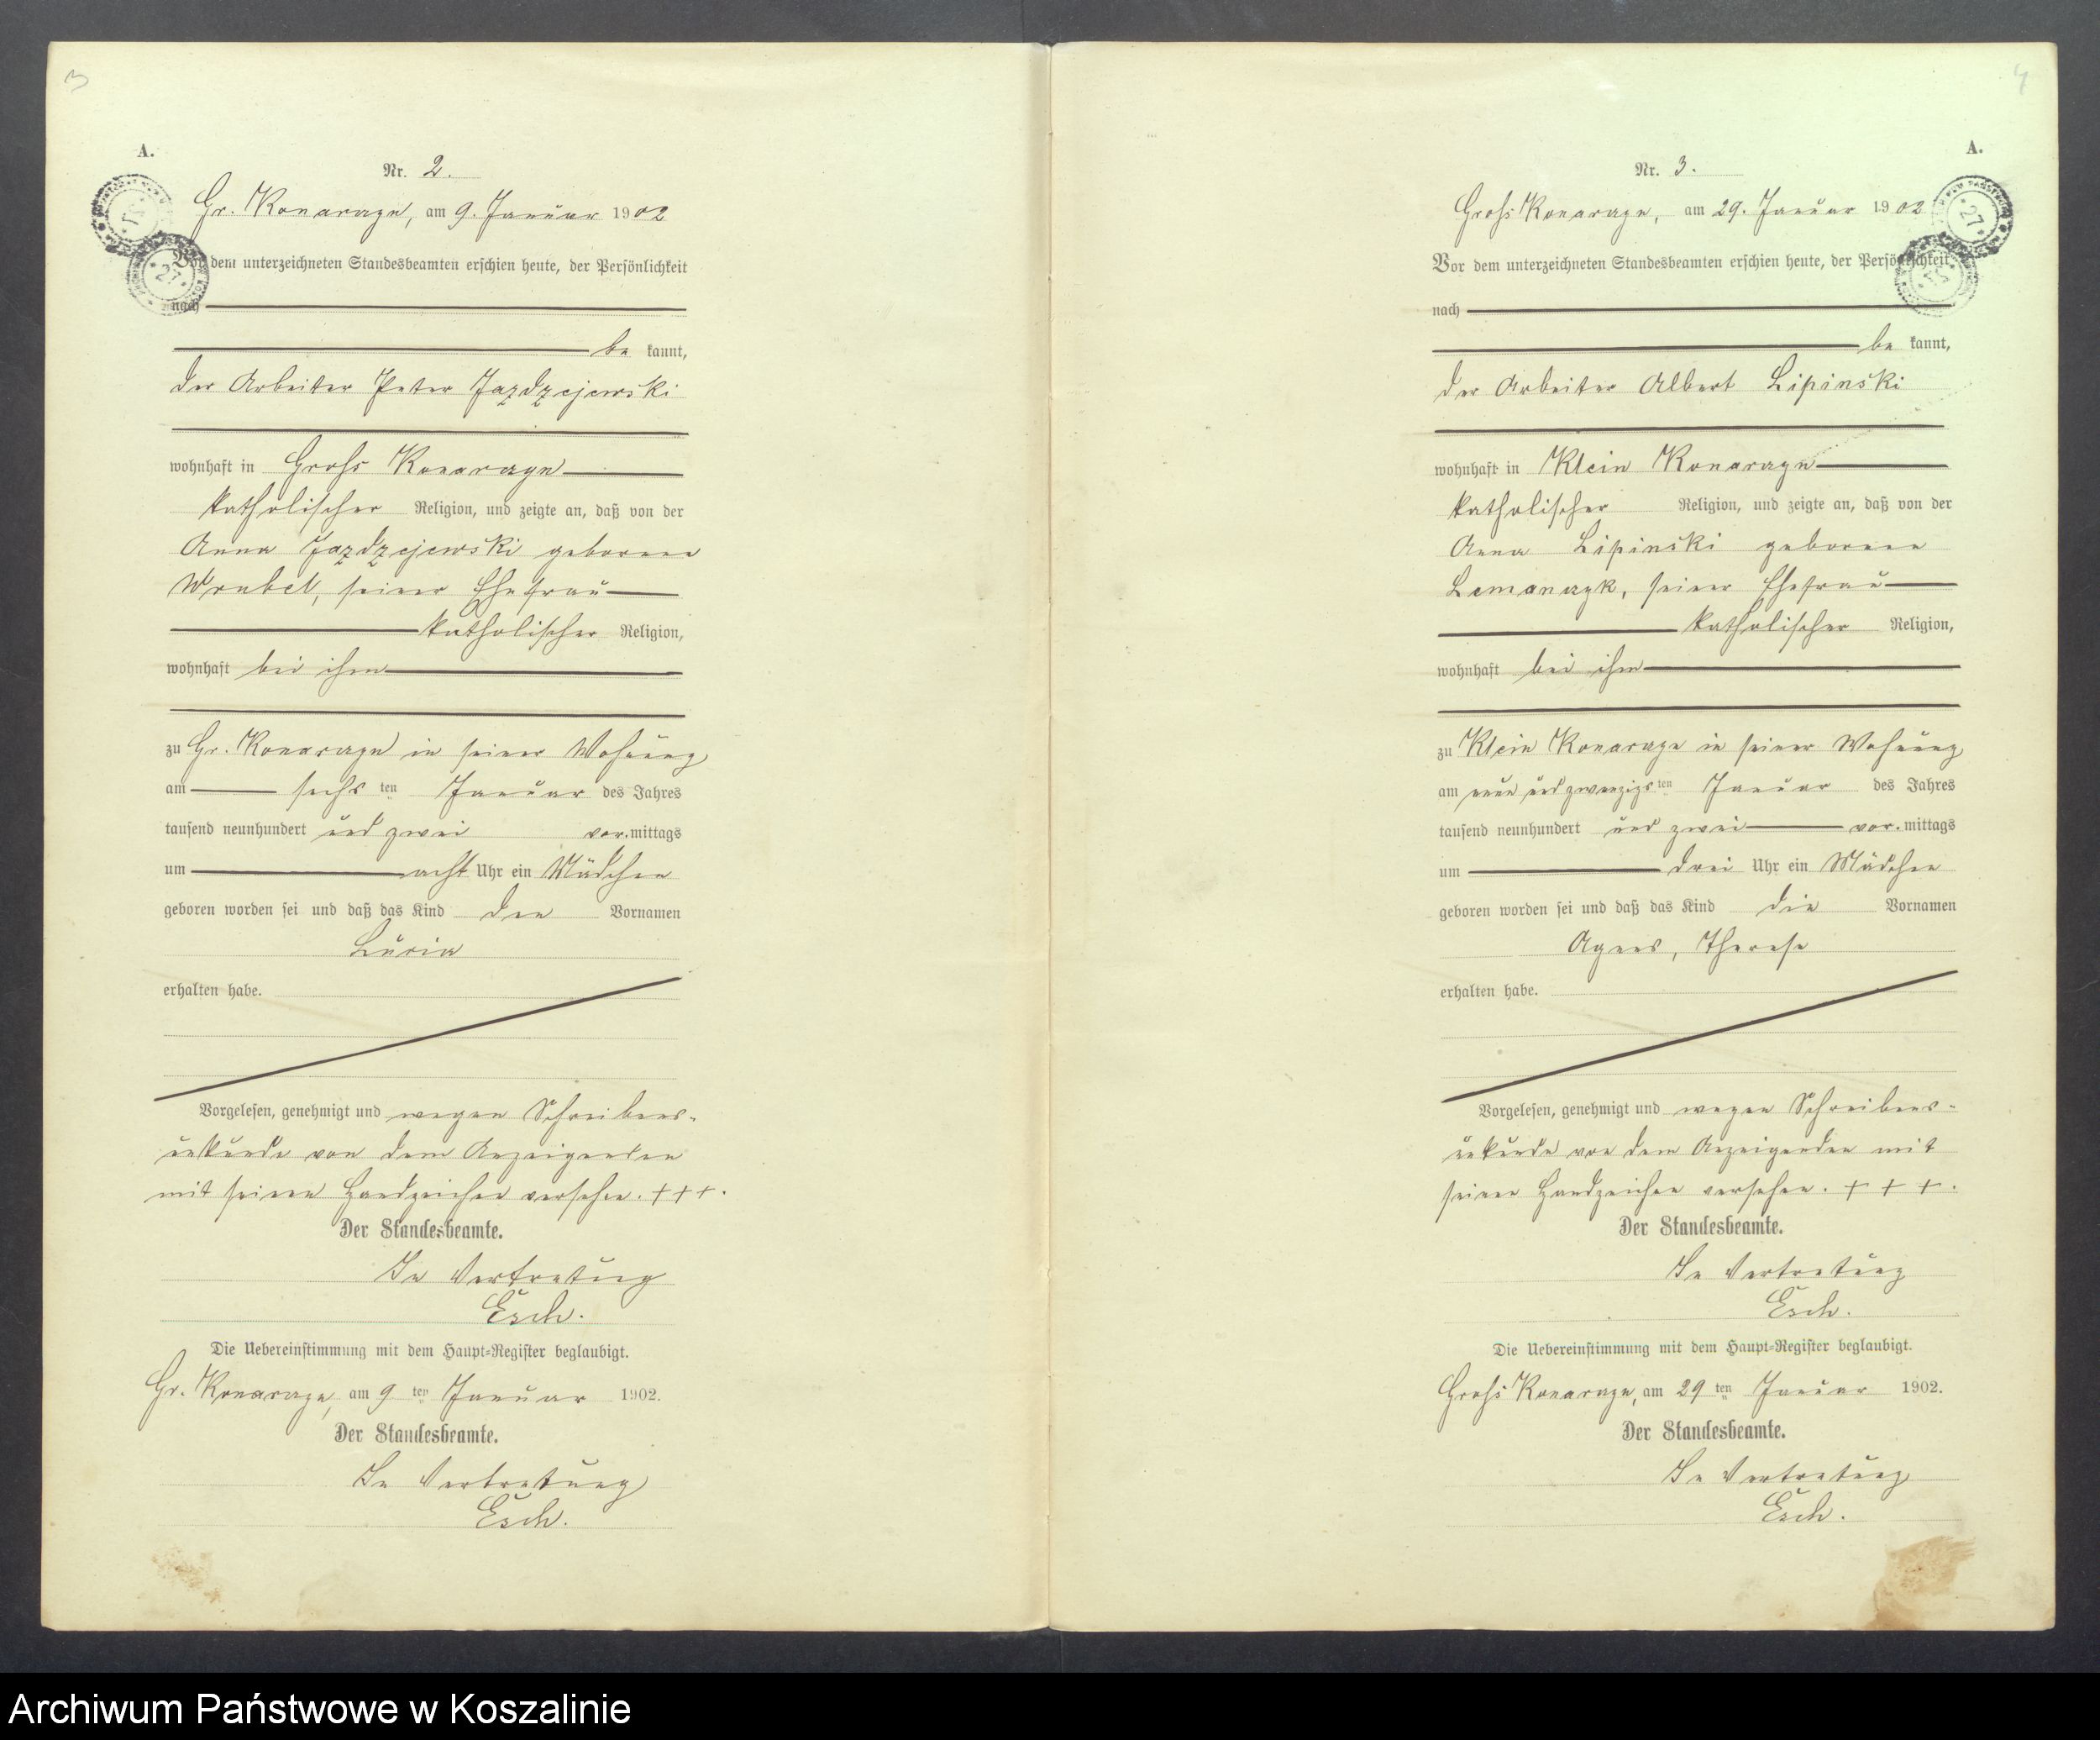 3
A.
Nr. 2.
Gr. Konarzyn, am 9. Januar 1902
Vor dem unterzeichneten Standesbeamten erschien heute, der Persönlichkeit
nach
be kannt,
der Arbeiter Peter Jazdzejewski
wohnhaft in Groß Konarzyn
katholischer Religion, und zeigte an, daß von der
Anna Jazdzejewski geborene
Wrubel, seiner Ehefrau
katholischer Religion,
wohnhaft bei ihm
zu Gr. Konarzyn in seiner Wohnung
am sechs ten Januar des Jahres
tausend neunhundert und zwei vor.mittags
um acht Uhr ein Mädchen
geboren worden sei und daß das Kind den Vornamen
erhalten habe.
Vorgelesen, genehmigt und wegen Schreibens-
unkunde von dem Anzeigenden
mit seinen Handzeichen versehen. +++.
Der Standesbeamte.
In Vertretung
Esch.
Die Uebereinstimmung mit dem Haupt-Register beglaubigt.
Gr. Konarzyn, am 9 ten Januar 1902.
Der Standesbeamte.
In Vertretung
Esch.
4
A.
Nr. 3.
Groß Konarzyn, am 29. Januar 1902
27
Vor dem unterzeichneten Standesbeamten erschien heute, der Persönlichkeit
nach
be kannt,
der Arbeiter Albert Lipinski
wohnhaft in Klein Konarzyn
katholischer Religion, und zeigte an, daß von der
Anna Lipinski geborene
Lemanczyk, seiner Ehefrau
katholischer Religion,
wohnhaft bei ihm
zu Klein Konarzyn in seiner Wohnung
am neun und zwanzigs ten Januar des Jahres
tausend neunhundert und zwei vor.mittags
um drei Uhr ein Mädchen
geboren worden sei und daß das Kind die Vornamen
Agnes, Therese
erhalten habe.
Vorgelesen, genehmigt und wegen Schreibens-
unkunde von dem Anzeigenden mit
seinen Handzeichen versehen. + + +.
Der Standesbeamte.
In Vertretung
Esch.
Die Uebereinstimmung mit dem Haupt-Register beglaubigt.
Groß Konarzyn, am 29 ten Januar 1902.
Der Standesbeamte.
In Vertretung
Esch.
Archiwum Państwowe w Koszalinie